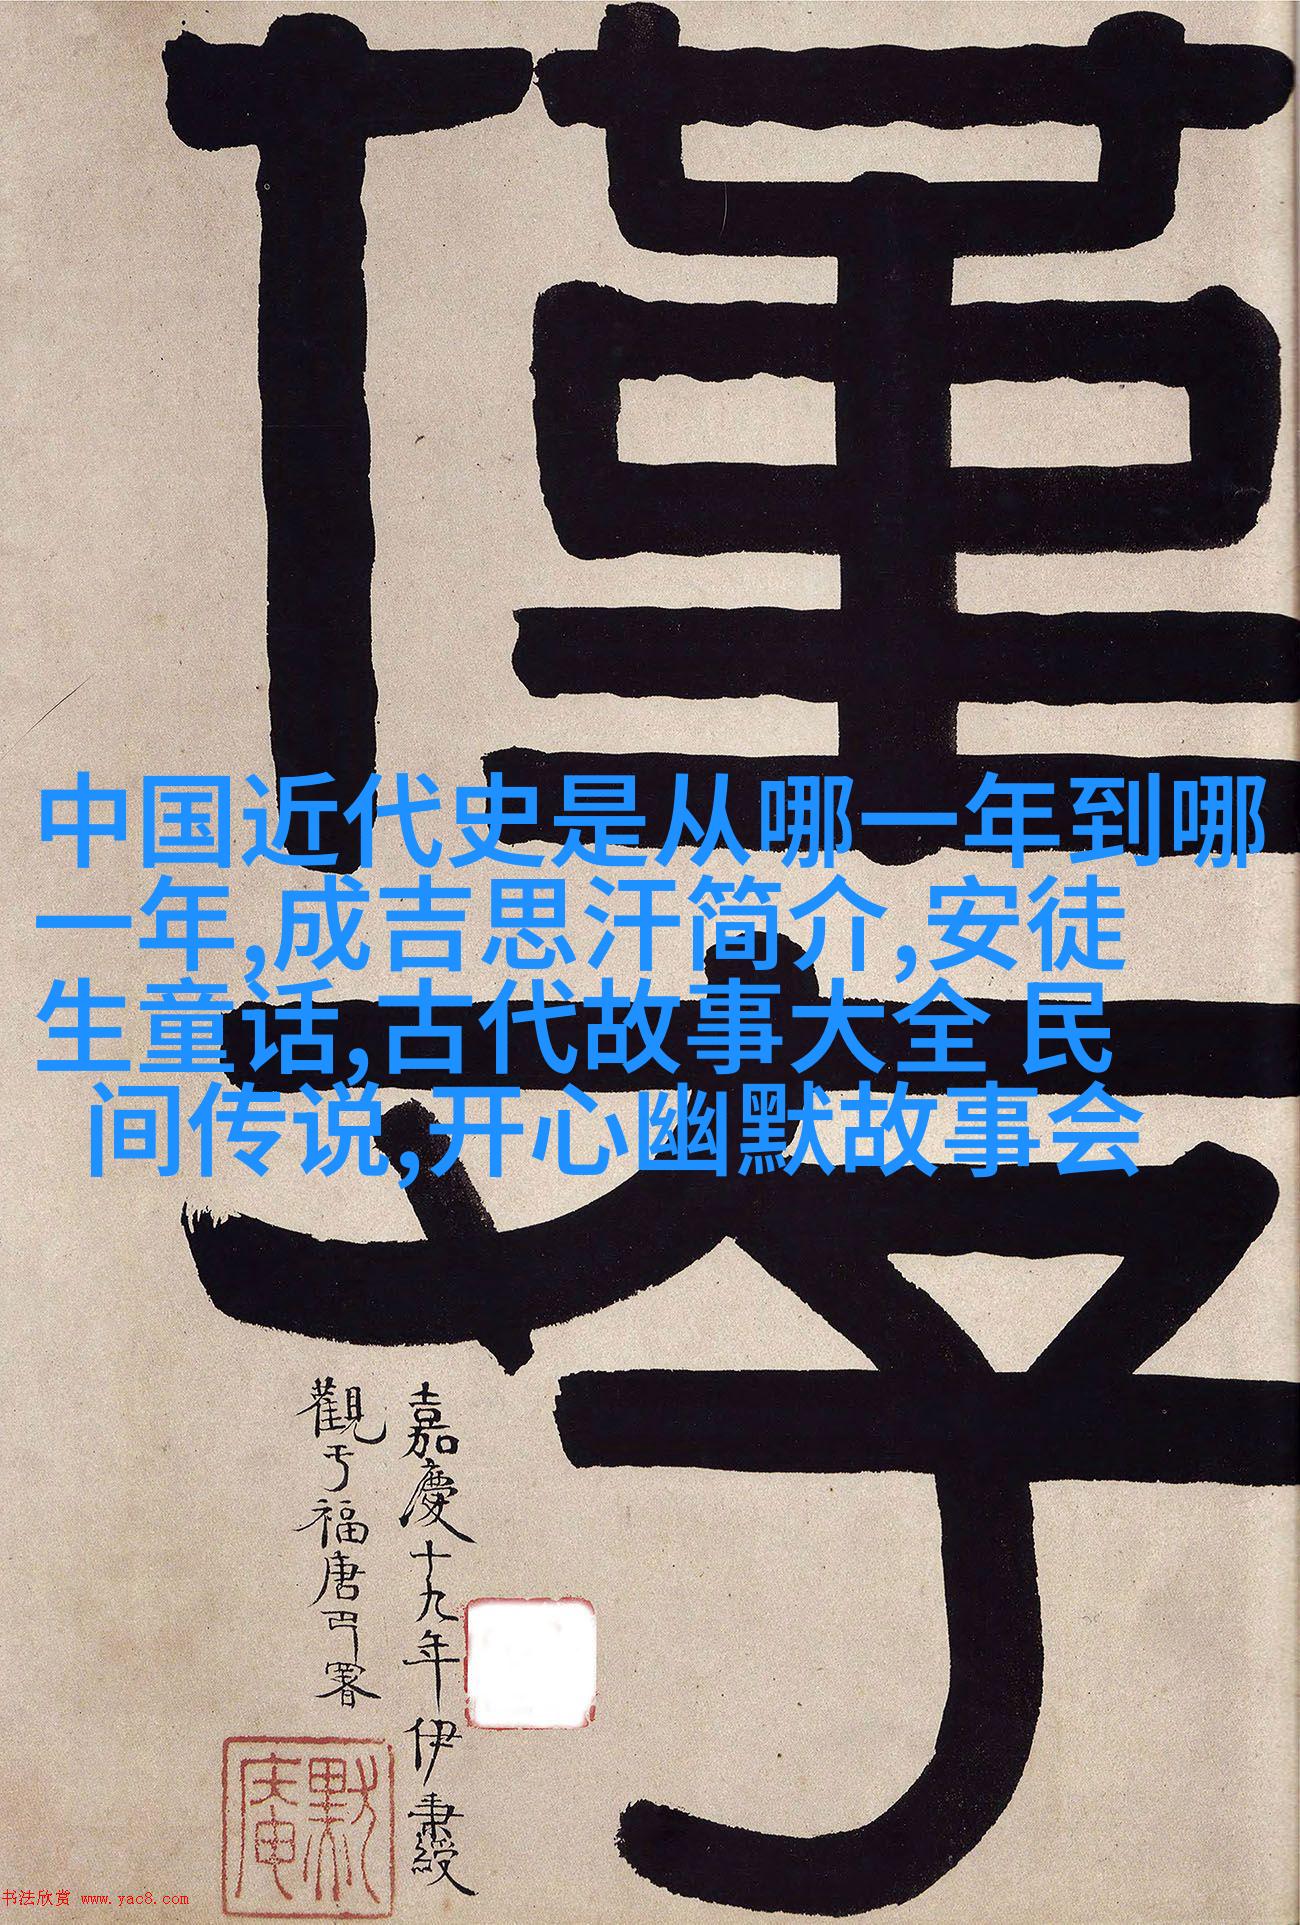 中国近代史是从哪一年到哪
一年,成吉思汗简介,安徒
生童话,古代故事大全 民
间传说,开心幽默故事会
嘉慶十九年伊秉綬
觀于福唐
署
默庵
书法欣赏 www.yac8.com